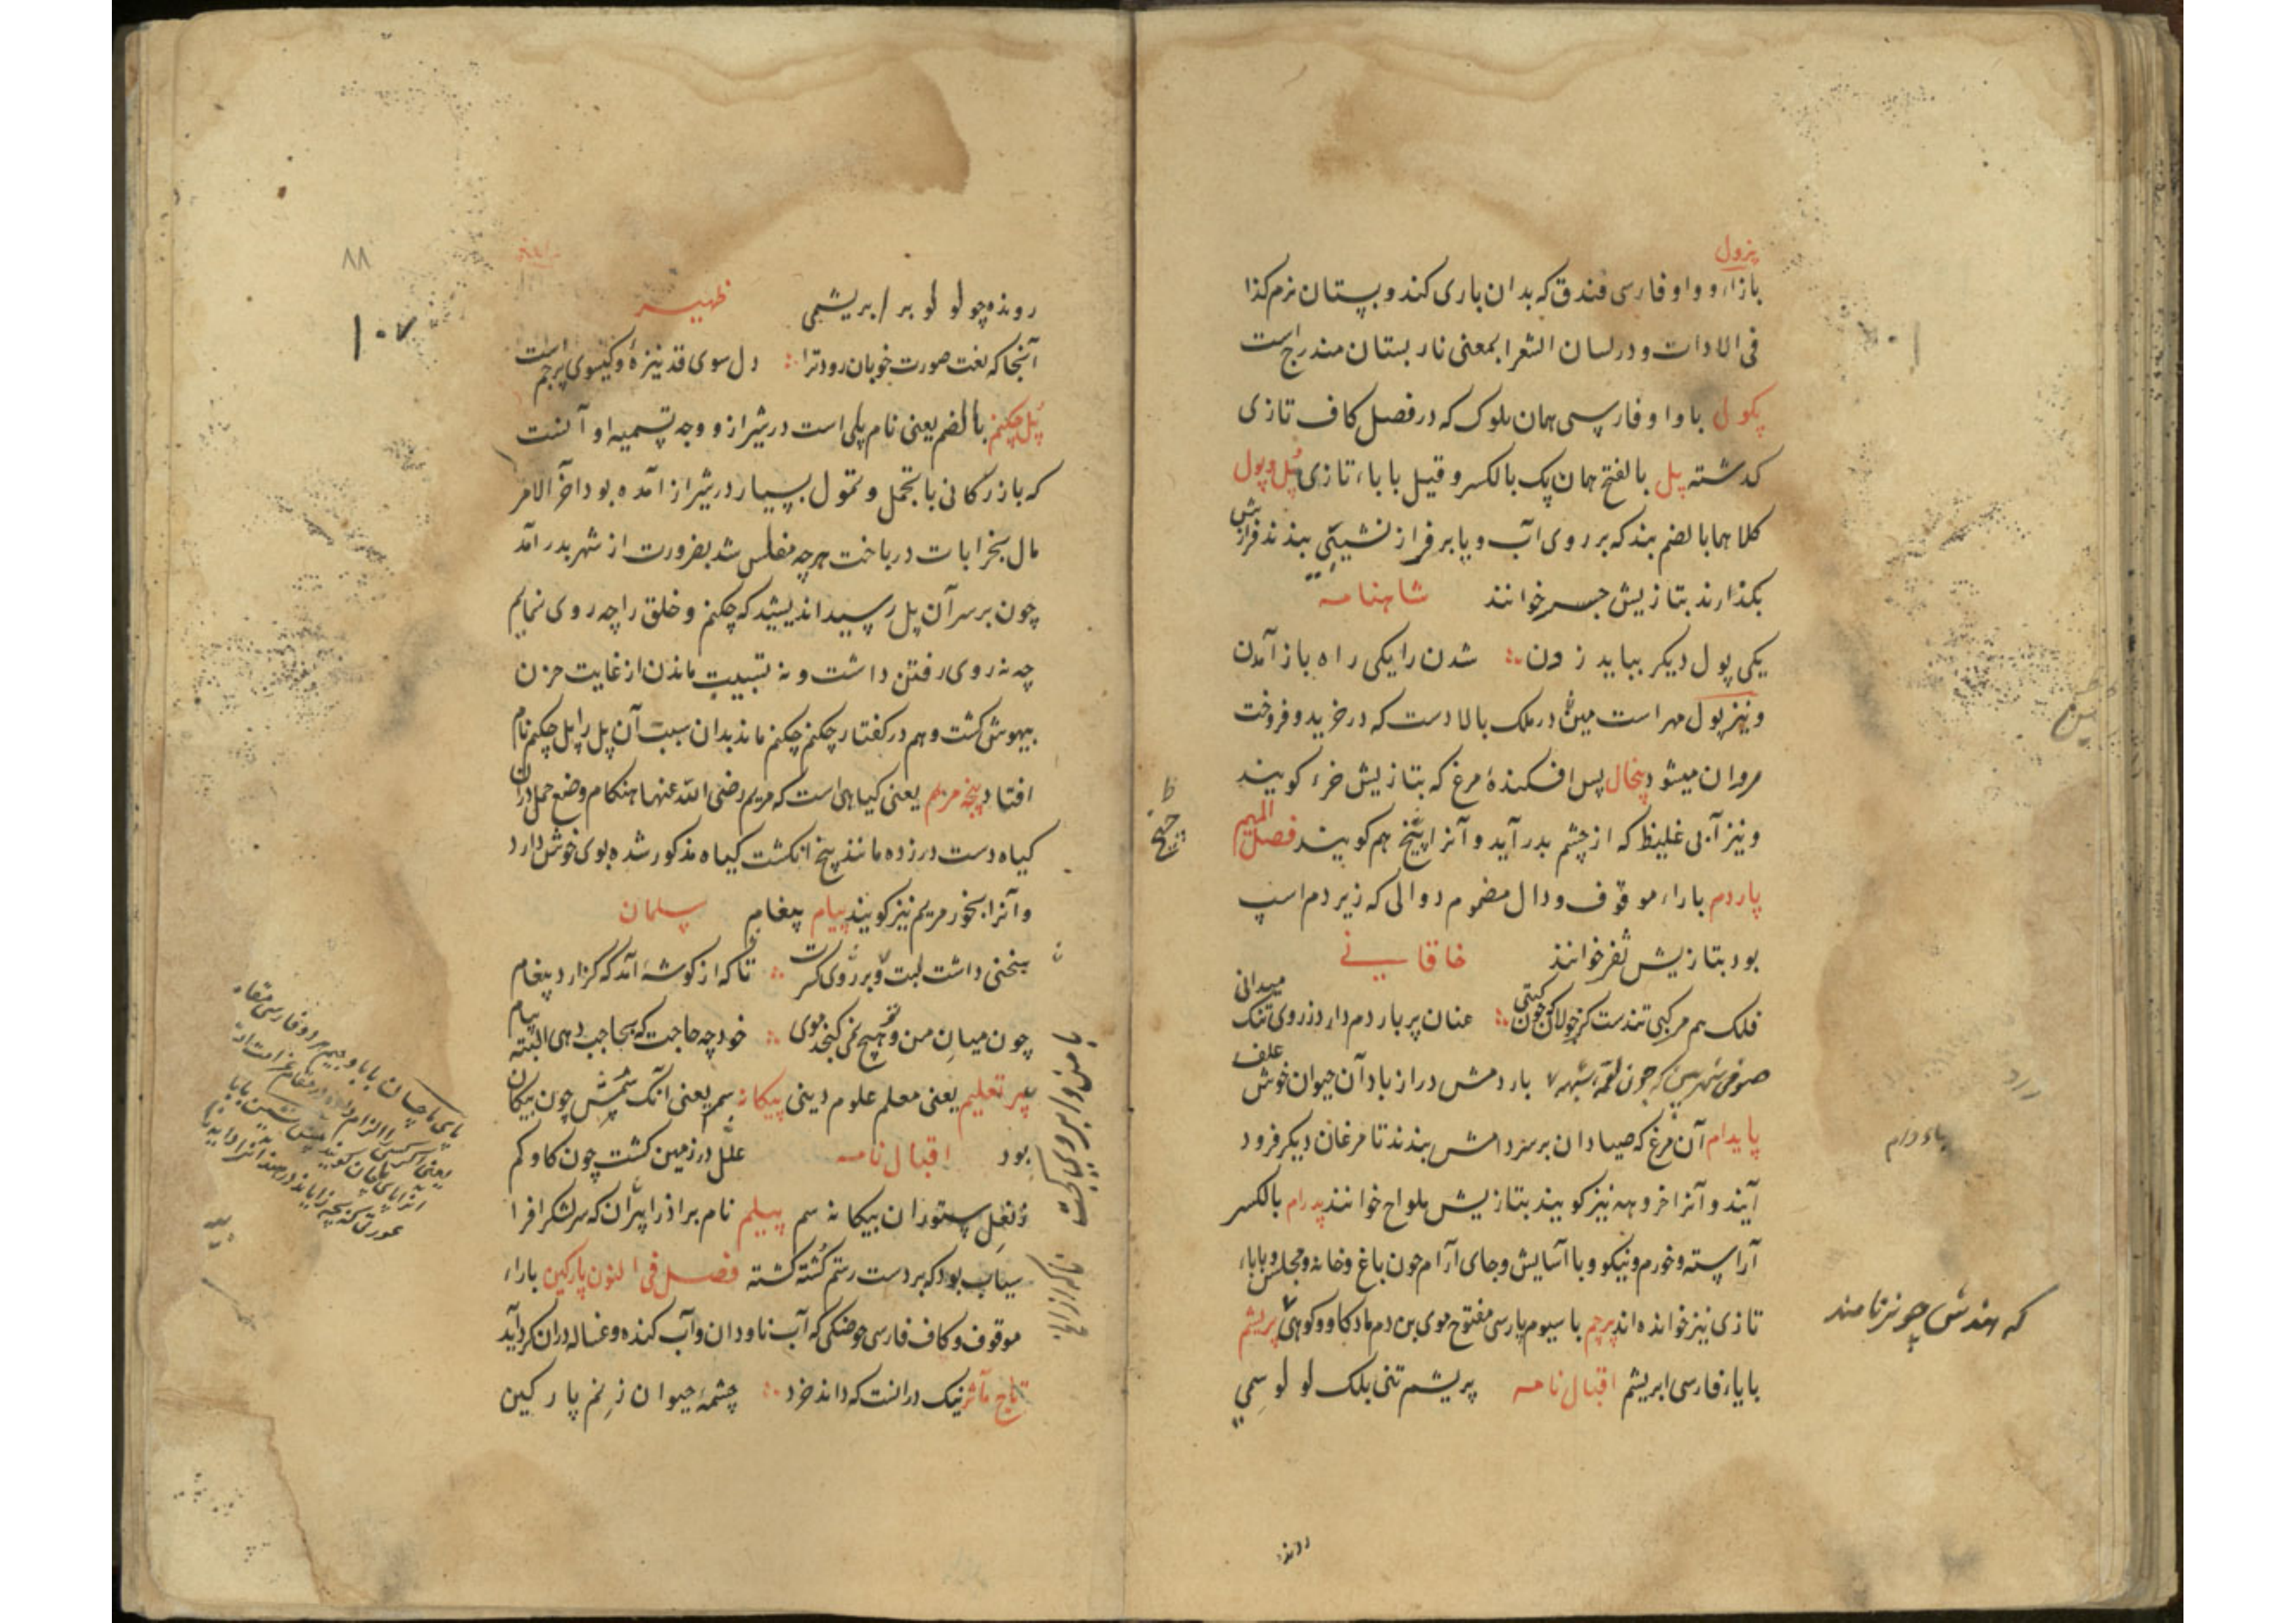 پزول
بازاء و واو فارسی فندق که بدان باری کنند و بپستان نرم کذا
فی الادات و در لسان الشعرا بمعنی نار بستان مندرج است
پکول با واو فارسی همان بلوک که در فصل کاف تازی
کدشته پل بالفتح همان پک بالکسر و قیل با باء تازی پل و پول
کلاهما بالضم بند که بر روی آب و یا بر فراز نشیبی بندند فرازش
بکذارند بتازیش جسر خوانند شاهنامه
یکی پول دیکر بباید زدن شدن را یکی راه باز آمدن
و نیز پول مهر است مین در ملک بالادست که در خرید و فروخت
روان میشود پنجال پس افکندۀ مرغ که بتازیش خرء کویند
و نیز آبی غلیظ که از چشم بدر آید و آنرا پیخ هم کویند فصل المیم
پاردم با راء موقوف و دال مضموم دوالی که زیر دم اسپ
بود بتازیش ثفر خوانند خاقانی
فلک هم مرکبی تندست کز جولان چون کیتی عنان پر پاردم دارد ز روی تنک میدانی
صوفی شهر بین که چون لقمه شبهه پاردمش دراز باد آن حیوان خوش علف
پایدام آن مرغ که صیادان بر سر دامش بندند تا مرغان دیکر فرود
آیند و آنرا خروهه نیز کویند بتازیش ملواح خوانند پدرام بالکسر
آراسته و خورم و نیکو و با آسایش و جای آرام چون باغ و خانه و مجلس و بابا
تازی نیز خوانده اند پرچم با سیوم پارسی مفتوح موی بن دم مادکاو و کوهی پریشم
با یاء فارسی ابریشم اقبال نامه پریشم تنی بلک لولو سمی
باء و دام
که هندش چونر نامند
روند
۸۸
۱۰۷
رونده چو لولو بر ابریشمی ظهیر
آنجا که نعت صورت خوبان رود ترا دل سوی قد نیزه و کیسوی پرچم است
پل چکنم بالضم یعنی نام پلی است در شیراز و وجه تسمیه او آنست
که بازرکانی با تجمل و تمول بسیار در شیراز آمده بود آخر الامر
مال بخرابات درباخت هرچه مفلس شد بضرورت از شهر بدر آمد
چون بر سر آن پل رسید اندیشید که چکنم و خلق را چه روی نمایم
چه نه روی رفتن داشت و نه ماندن از غایت حزن
بیهوش کشت و هم در کفتار چکنم چکنم ماند بدان سبب آن پل را پل چکنم نام
افتاد پنجه مریم یعنی کیاهی است که مریم رضی الله عنها هنکام وضع حمل در ان
کیاه دست در زده مانند پنج انکشت کیاه مذکور شده بوی خوش دارد
و آنرا بخور مریم نیز کویند پیام پیغام سلمان
سخنی داشت لبت تا که از کوشه آمد که کزارد پیغام
چون میان من و تو هیچ نمی کنجد موی خود چه حاجت که بحاجب دهی البته پیام
پیر تعلیم یعنی معلم علوم دینی پیکانه سم یعنی آنک سمش چون پیکان
بود اقبال نامه علل در زمین کشت چون کاو کم
ز نعل ستوران پیکانه سم پیلم نام براذر پیران که سر لشکر افرا
سیاب بود که بر دست رستم کشته کشته فصل فی النون پارکین با راء
موقوف و کاف فارسی حوضکی که آب ناودان و آب کنده و غساله در ان کرد آید
تاج مآثر نیک در انست که داند خرد چشمۀ حیوان ز نم پارکین